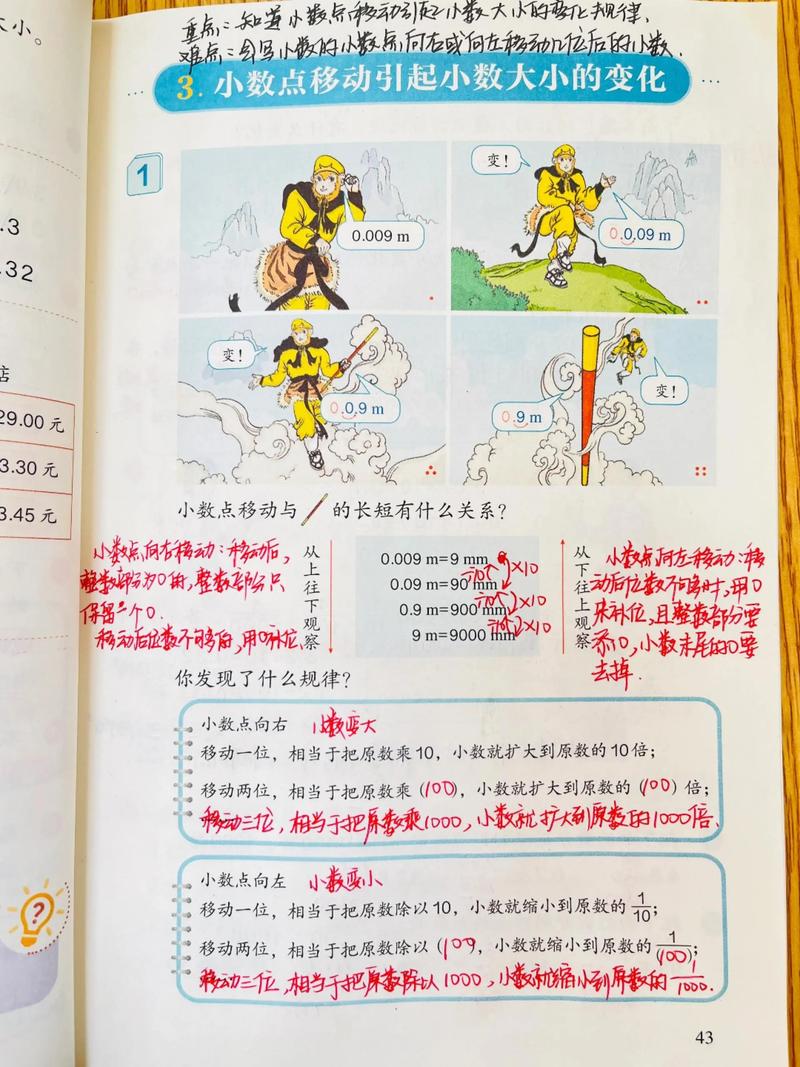 大小。
.3
.32
店
29.00 元
3.30 元
3.45 元
重点：知道小数点移动引起小数大小的变化规律.
难点：会写小数的小数点向右或向左移动几位后的小数.
3. 小数点移动引起小数大小的变化
1
0.009 m
变！
0.0.09 m
变！
0.0.9 m
0.9 m
变！
小数点移动与
的长短有什么关系？
小数点向右移动：移动后，
整数部分为0时，整数部分只
保留一个0.
移动后位数不够的，用0补位.
从上往下观察
0.009 m=9 mm
÷10 ×10
0.09 m=90 mm
÷10 ×10
0.9 m=900 mm
÷10 ×10
9 m=9000 mm
从下往上观察
小数点向左移动：移
动后位数不够时，用0
来补位，且整数部分要
添0，小数末尾的0要
去掉.
你发现了什么规律？
小数点向右 小数变大
移动一位，相当于把原数乘10，小数就扩大到原数的10倍；
移动两位，相当于把原数乘（100），小数就扩大到原数的（100）倍；
移动三位，相当于把原数乘1000，小数就扩大到原数的1000倍.
小数点向左 小数变小
移动一位，相当于把原数除以10，小数就缩小到原数的1/10；
移动两位，相当于把原数除以（100），小数就缩小到原数的1/(100)；
移动三位，相当于把原数除以1000，小数就缩小到原数的1/1000.
?
43